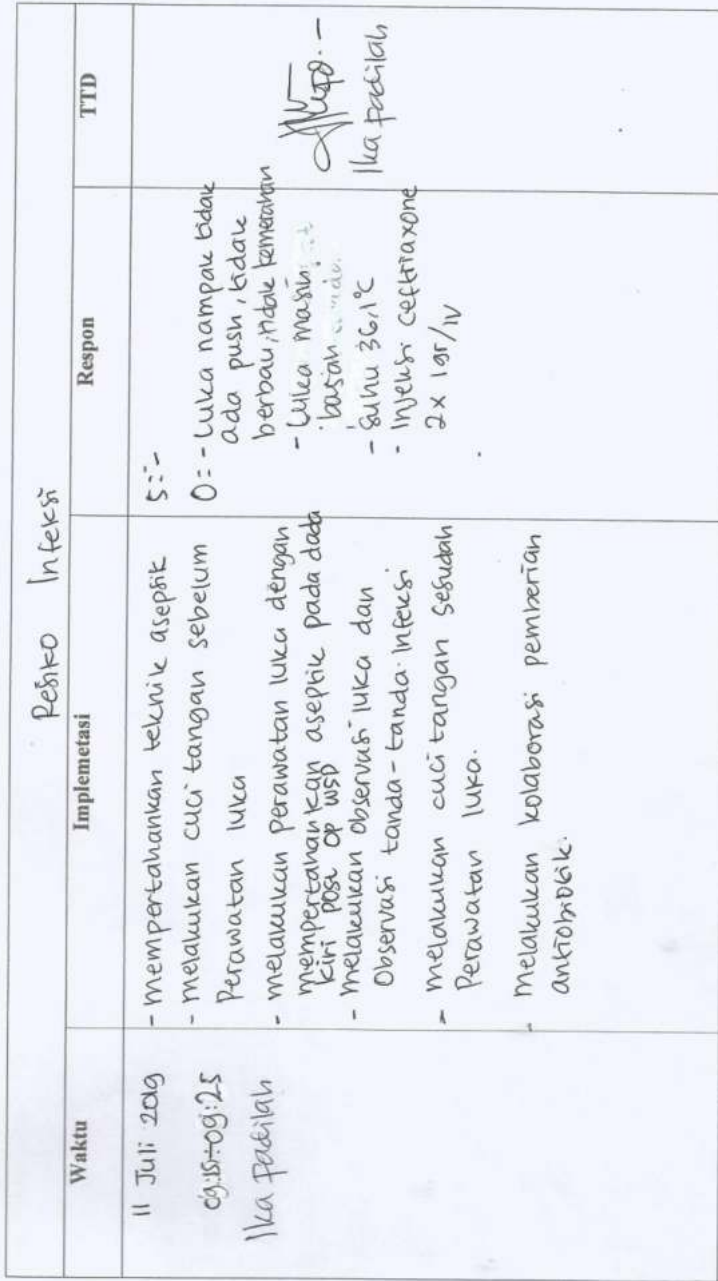 Resiko Infeksi
Waktu
Implemetasi
Respon
TTD
11 Juli 2019
09:15-09:25
Ika Padilah
- mempertahankan teknik aseptik
- melakukan cuci tangan sebelum
Perawatan luka
- melakukan perawatan luka dengan
mempertahankan aseptik pada dada
kiri post op WSD
- melakukan observasi luka dan
Observasi tanda-tanda infeksi
- melakukan cuci tangan sesudah
Perawatan luka.
- melakukan kolaborasi pemberian
antiobiotik.
S = -
O = - Luka nampak tidak
ada push, tidak
berbau, tidak kemerahan
- Luka masih
basah
- Suhu 36,1°C
- Injeksi ceftriaxone
2x 1gr/IV
Ika Padilah